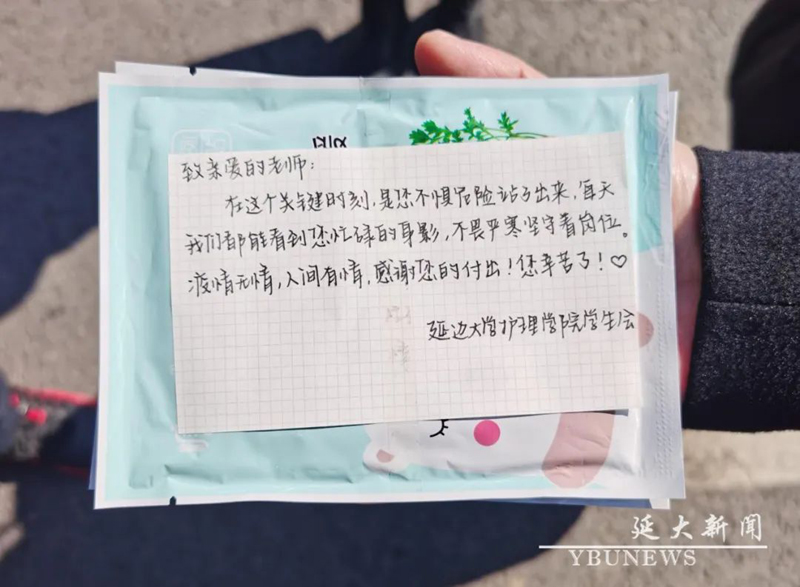 致亲爱的老师：
在这个关键时刻，是您不惧危险站了出来，每天
我们都能看到您忙碌的身影，不畏严寒坚守着岗位。
疫情无情，人间有情，感谢您的付出！您辛苦了！♡
延边大学护理学院学生会
延大新闻
YBUNEWS